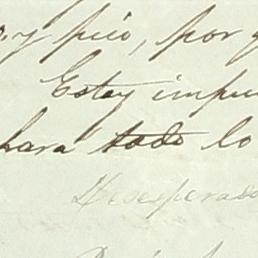 y pico, por
Estoy impu
hara todo lo
Desesperado